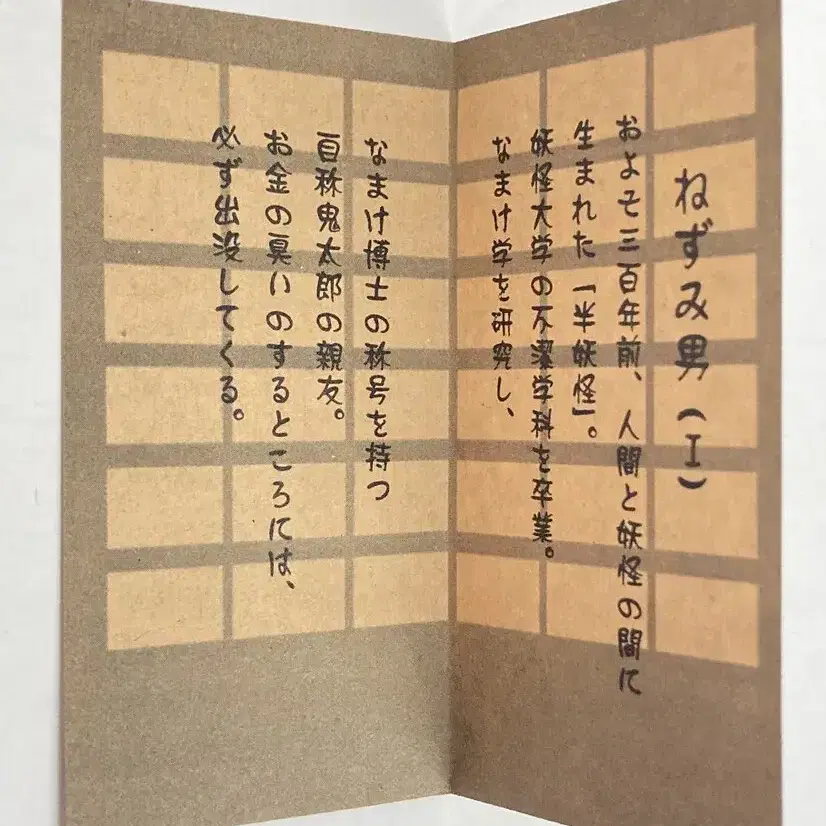 ねずみ男(I)
およそ三百年前、人間と妖怪の間に
生まれた「半妖怪」。
妖怪大学の不潔学科を卒業。
なまけ学を研究し、
なまけ博士の称号を持つ
自称鬼太郎の親友。
お金の臭いのするところには、
必ず出没してくる。